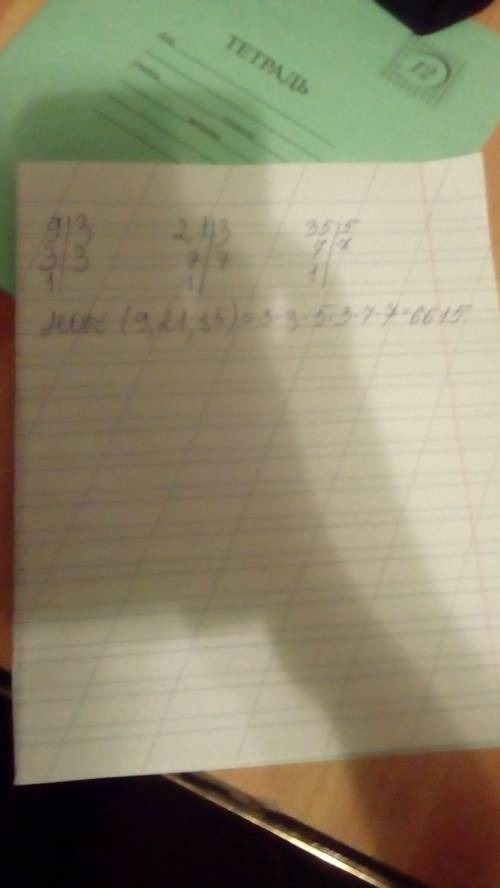 ТЕТРАДЬ
12
9|3 21|3 35|5
3|3 7|7 7|7
1| 1| 1|
НОК (9,21,35)=3·3·5·3·7·7=6615